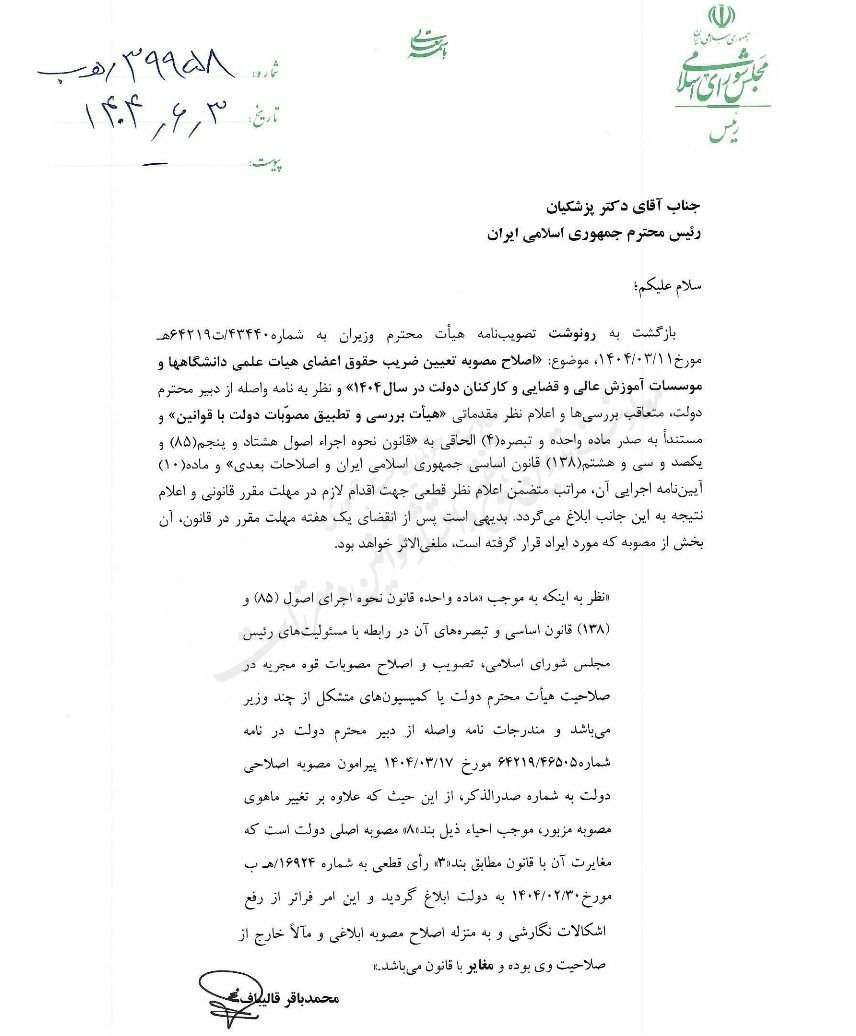 جمهوری اسلامی ایران
مجلس شورای اسلامی
رئیس
باسمه تعالی
شماره: ۳۹۹۵۸/هـ ب
تاریخ: ۱۴۰۴٫۶٫۳
پیوست: –
جناب آقای دکتر پزشکیان
رئیس محترم جمهوری اسلامی ایران
سلام علیکم؛
بازگشت به رونوشت تصویب‌نامه هیأت محترم وزیران به شماره۴۳۴۴۰/ت۶۴۲۱۹هـ
مورخ۱۴۰۴/۰۳/۱۱، موضوع: «اصلاح مصوبه تعیین ضریب حقوق اعضای هیات علمی دانشگاهها و
موسسات آموزش عالی و قضایی و کارکنان دولت در سال۱۴۰۴» و نظر به نامه واصله از دبیر محترم
دولت، متعاقب بررسی‌ها و اعلام نظر مقدماتی «هیأت بررسی و تطبیق مصوّبات دولت با قوانین» و
مستنداً به صدر ماده واحده و تبصره(۴) الحاقی به «قانون نحوه اجراء اصول هشتاد و پنجم(۸۵) و
یکصد و سی و هشتم(۱۳۸) قانون اساسی جمهوری اسلامی ایران و اصلاحات بعدی» و ماده(۱۰)
آیین‌نامه اجرایی آن، مراتب متضمن اعلام نظر قطعی جهت اقدام لازم در مهلت مقرر قانونی و اعلام
نتیجه به این جانب ابلاغ می‌گردد. بدیهی است پس از انقضای یک هفته مهلت مقرر در قانون، آن
بخش از مصوبه که مورد ایراد قرار گرفته است، ملغی‌الاثر خواهد بود.
«نظر به اینکه به موجب «ماده واحده قانون نحوه اجرای اصول (۸۵) و
(۱۳۸) قانون اساسی و تبصره‌های آن در رابطه با مسئولیت‌های رئیس
مجلس شورای اسلامی، تصویب و اصلاح مصوبات قوه مجریه در
صلاحیت هیأت محترم دولت یا کمیسیون‌های متشکل از چند وزیر
می‌باشد و مندرجات نامه واصله از دبیر محترم دولت در نامه
شماره۶۴۲۱۹/۴۶۵۰۵ مورخ ۱۴۰۴/۰۳/۱۷ پیرامون مصوبه اصلاحی
دولت به شماره صدرالذکر، از این حیث که علاوه بر تغییر ماهوی
مصوبه مزبور، موجب احیاء ذیل بند«۸» مصوبه اصلی دولت است که
مغایرت آن با قانون مطابق بند«۳» رأی قطعی به شماره ۱۶۹۲۴/هـ ب
مورخ۱۴۰۴/۰۲/۳۰ به دولت ابلاغ گردید و این امر فراتر از رفع
اشکالات نگارشی و به منزله اصلاح مصوبه ابلاغی و مآلاً خارج از
صلاحیت وی بوده و مغایر با قانون می‌باشد.»
محمدباقر قالیباف